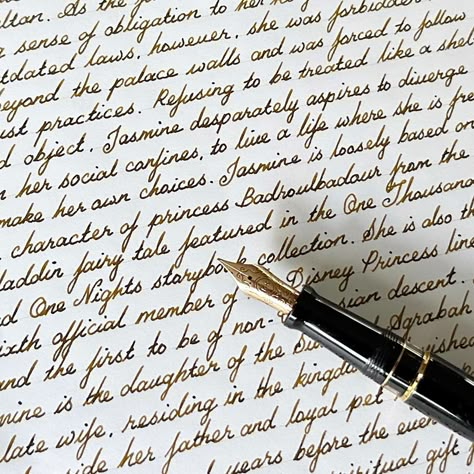 ltan. As the
sense of obligation to her
tdated laws, however, she was forbidden
beyond the palace walls and was forced to follow
ust practices. Refusing to be treated like a shel
d object, Jasmine desparately aspires to diverge
her social confines, to live a life where she is fre
make her own choices. Jasmine is loosely based on
character of princess Badroulbadour from the
laddin fairy tale featured in the One Thousand
d One Nights storybook collection. She is also th
ixth official member of Disney Princess line
and the first to be of non- sian descent.
mine is the daughter of the Su Agrabah
late wife, residing in the kingdo nished
side her father and loyal pet
years before the even
spiritual gift